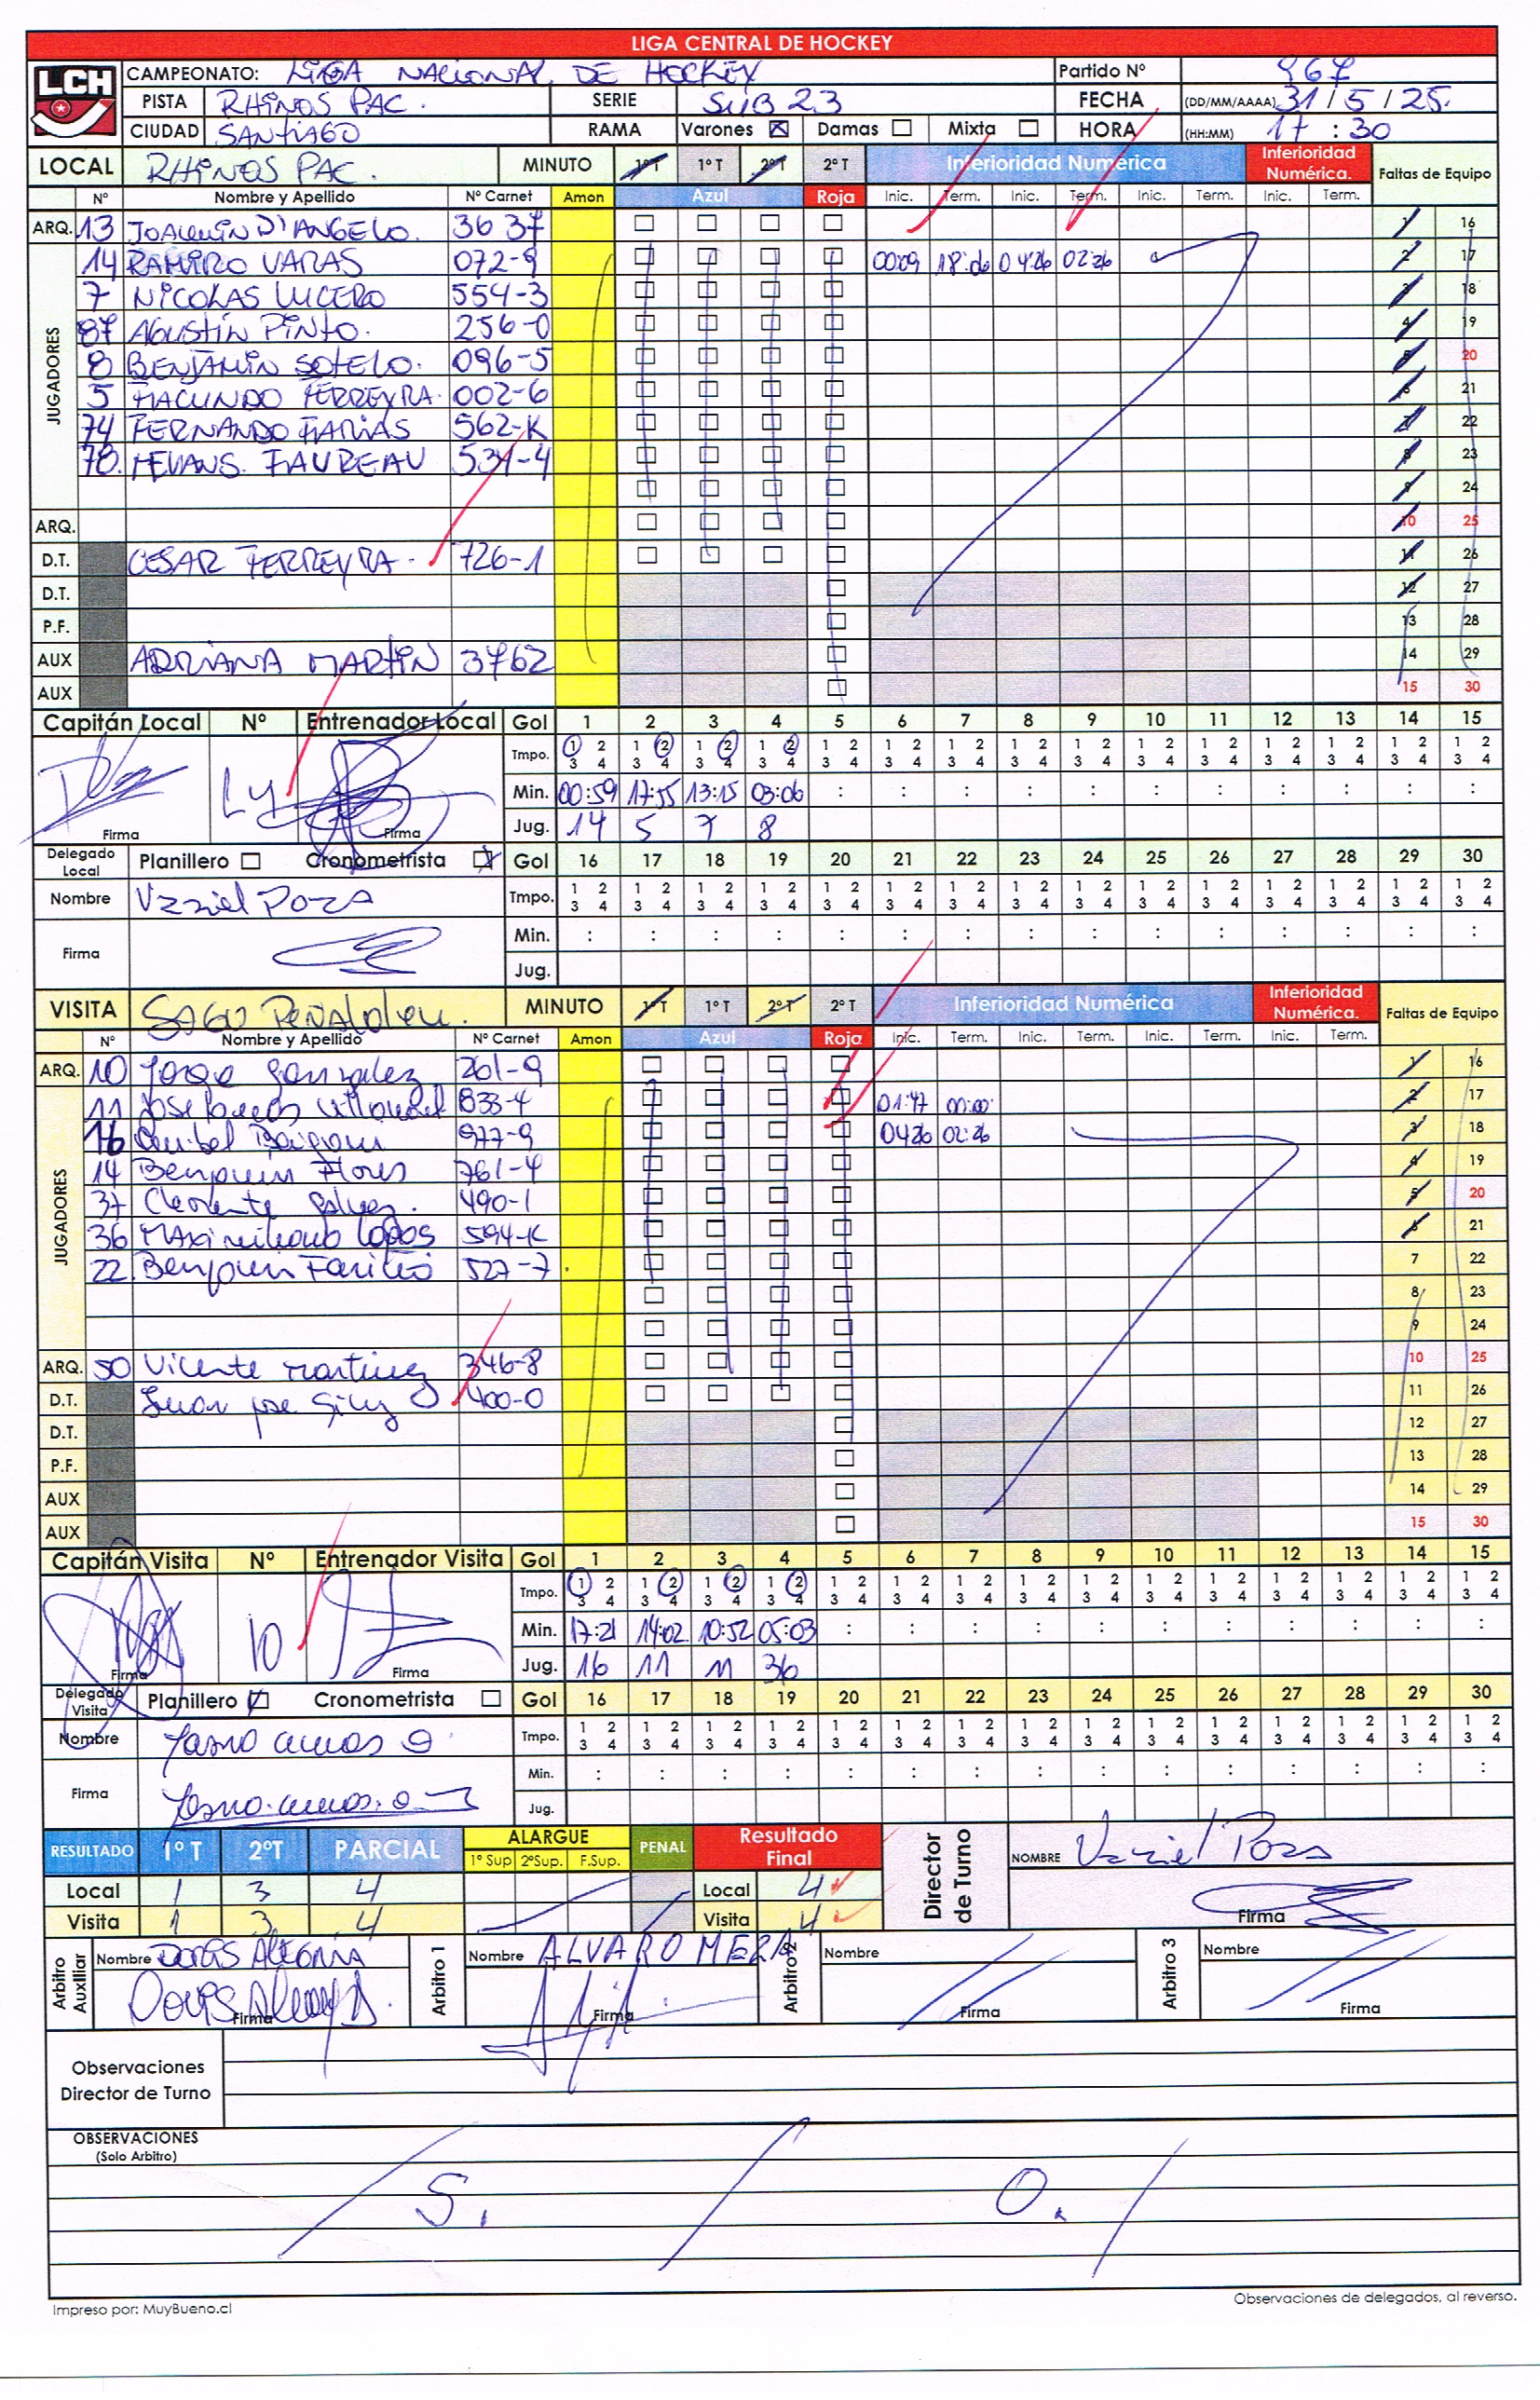 LIGA CENTRAL DE HOCKEY
LCH
CAMPEONATO: LIGA NACIONAL DE HOCKEY Partido Nº 967
PISTA RHINOS PAC. SERIE SUB 23 FECHA (DD/MM/AAAA) 31 / 5 / 25.
CIUDAD SANTIAGO RAMA Varones ☒ Damas ☐ Mixta ☐ HORA (HH:MM) 17 : 30
LOCAL RHINOS PAC. MINUTO 1º T 1º T 2º T 2º T Inferioridad Numérica Inferioridad Numérica. Faltas de Equipo
Nº Nombre y Apellido Nº Carnet Amon Azul Roja Inic. Term. Inic. Term. Inic. Term. Inic. Term.
ARQ. 13 JOAQUIN D'ANGELO. 3637 1 16
JUGADORES
14 RAMIRO VARAS 072-9 00:09 18:06 04:26 02:26 2 17
7 NICOLAS LUCERO 554-3 3 18
87 AGUSTIN PINTO. 256-0 4 19
8 BENJAMIN SOTELO. 096-5 5 20
5 FACUNDO FERREYRA. 002-6 6 21
74 FERNANDO FARIAS 562-K 7 22
78. FAUREAU 534-4 8 23
9 24
ARQ. 10 25
D.T. CESAR FERREYRA. 726-1 11 26
D.T. 12 27
P.F. 13 28
AUX ADRIANA MARTIN 3762 14 29
AUX 15 30
Capitán Local Nº Entrenador Local Gol 1 2 3 4 5 6 7 8 9 10 11 12 13 14 15
Tmpo. 1 2 1 2 1 2 1 2 1 2 1 2 1 2 1 2 1 2 1 2 1 2 1 2 1 2 1 2 1 2
3 4 3 4 3 4 3 4 3 4 3 4 3 4 3 4 3 4 3 4 3 4 3 4 3 4 3 4 3 4
Min. 00:59 17:55 13:15 03:06 : : : : : : : : : : :
Firma Firma Jug. 14 5 7 8
Delegado Local Planillero ☐ Cronometrista ☒ Gol 16 17 18 19 20 21 22 23 24 25 26 27 28 29 30
Nombre Uzziel Poza Tmpo. 1 2 1 2 1 2 1 2 1 2 1 2 1 2 1 2 1 2 1 2 1 2 1 2 1 2 1 2 1 2
3 4 3 4 3 4 3 4 3 4 3 4 3 4 3 4 3 4 3 4 3 4 3 4 3 4 3 4 3 4
Firma Min. : : : : : : : : : : : : : : :
Jug.
VISITA SAGU PEÑALOLEN. MINUTO 1º T 1º T 2º T 2º T Inferioridad Numérica Inferioridad Numérica. Faltas de Equipo
Nº Nombre y Apellido Nº Carnet Amon Azul Roja Inic. Term. Inic. Term. Inic. Term. Inic. Term.
ARQ. 10 Jorge Gonzalez 261-9 1 16
JUGADORES
11 Jose 833-4 01:47 00:00 2 17
16 977-9 04:26 02:26 3 18
14 Benjamin Flores 761-4 4 19
37 Clemente 490-1 5 20
36 Maximiliano Lopos 594-K 6 21
22. Benjamin 527-7 7 22
8 23
9 24
ARQ. 50 Vicente Martinez 346-8 10 25
D.T. Juan jose 400-0 11 26
D.T. 12 27
P.F. 13 28
AUX 14 29
AUX 15 30
Capitán Visita Nº Entrenador Visita Gol 1 2 3 4 5 6 7 8 9 10 11 12 13 14 15
Tmpo. 1 2 1 2 1 2 1 2 1 2 1 2 1 2 1 2 1 2 1 2 1 2 1 2 1 2 1 2 1 2
3 4 3 4 3 4 3 4 3 4 3 4 3 4 3 4 3 4 3 4 3 4 3 4 3 4 3 4 3 4
10 Min. 17:21 14:02 10:52 05:03 : : : : : : : : : : :
Firma Firma Jug. 16 11 11 36
Delegado Visita Planillero ☑ Cronometrista ☐ Gol 16 17 18 19 20 21 22 23 24 25 26 27 28 29 30
Nombre Tmpo. 1 2 1 2 1 2 1 2 1 2 1 2 1 2 1 2 1 2 1 2 1 2 1 2 1 2 1 2 1 2
3 4 3 4 3 4 3 4 3 4 3 4 3 4 3 4 3 4 3 4 3 4 3 4 3 4 3 4 3 4
Firma Min. : : : : : : : : : : : : : : :
Jug.
RESULTADO 1º T 2ºT PARCIAL ALARGUE 1º Sup 2ºSup. F.Sup. PENAL Resultado Final Director de Turno NOMBRE Uzziel Poza
Local 1 3 4 Local 4
Visita 1 3 4 Visita 4 Firma
Arbitro Auxiliar Nombre Doris Arbitro 1 Nombre ALVARO MEZA Arbitro 2 Nombre Arbitro 3 Nombre
Firma Firma Firma Firma
Observaciones
Director de Turno
OBSERVACIONES
(Solo Arbitro)
S. / O.
Impreso por: MuyBueno.cl Observaciones de delegados, al reverso.